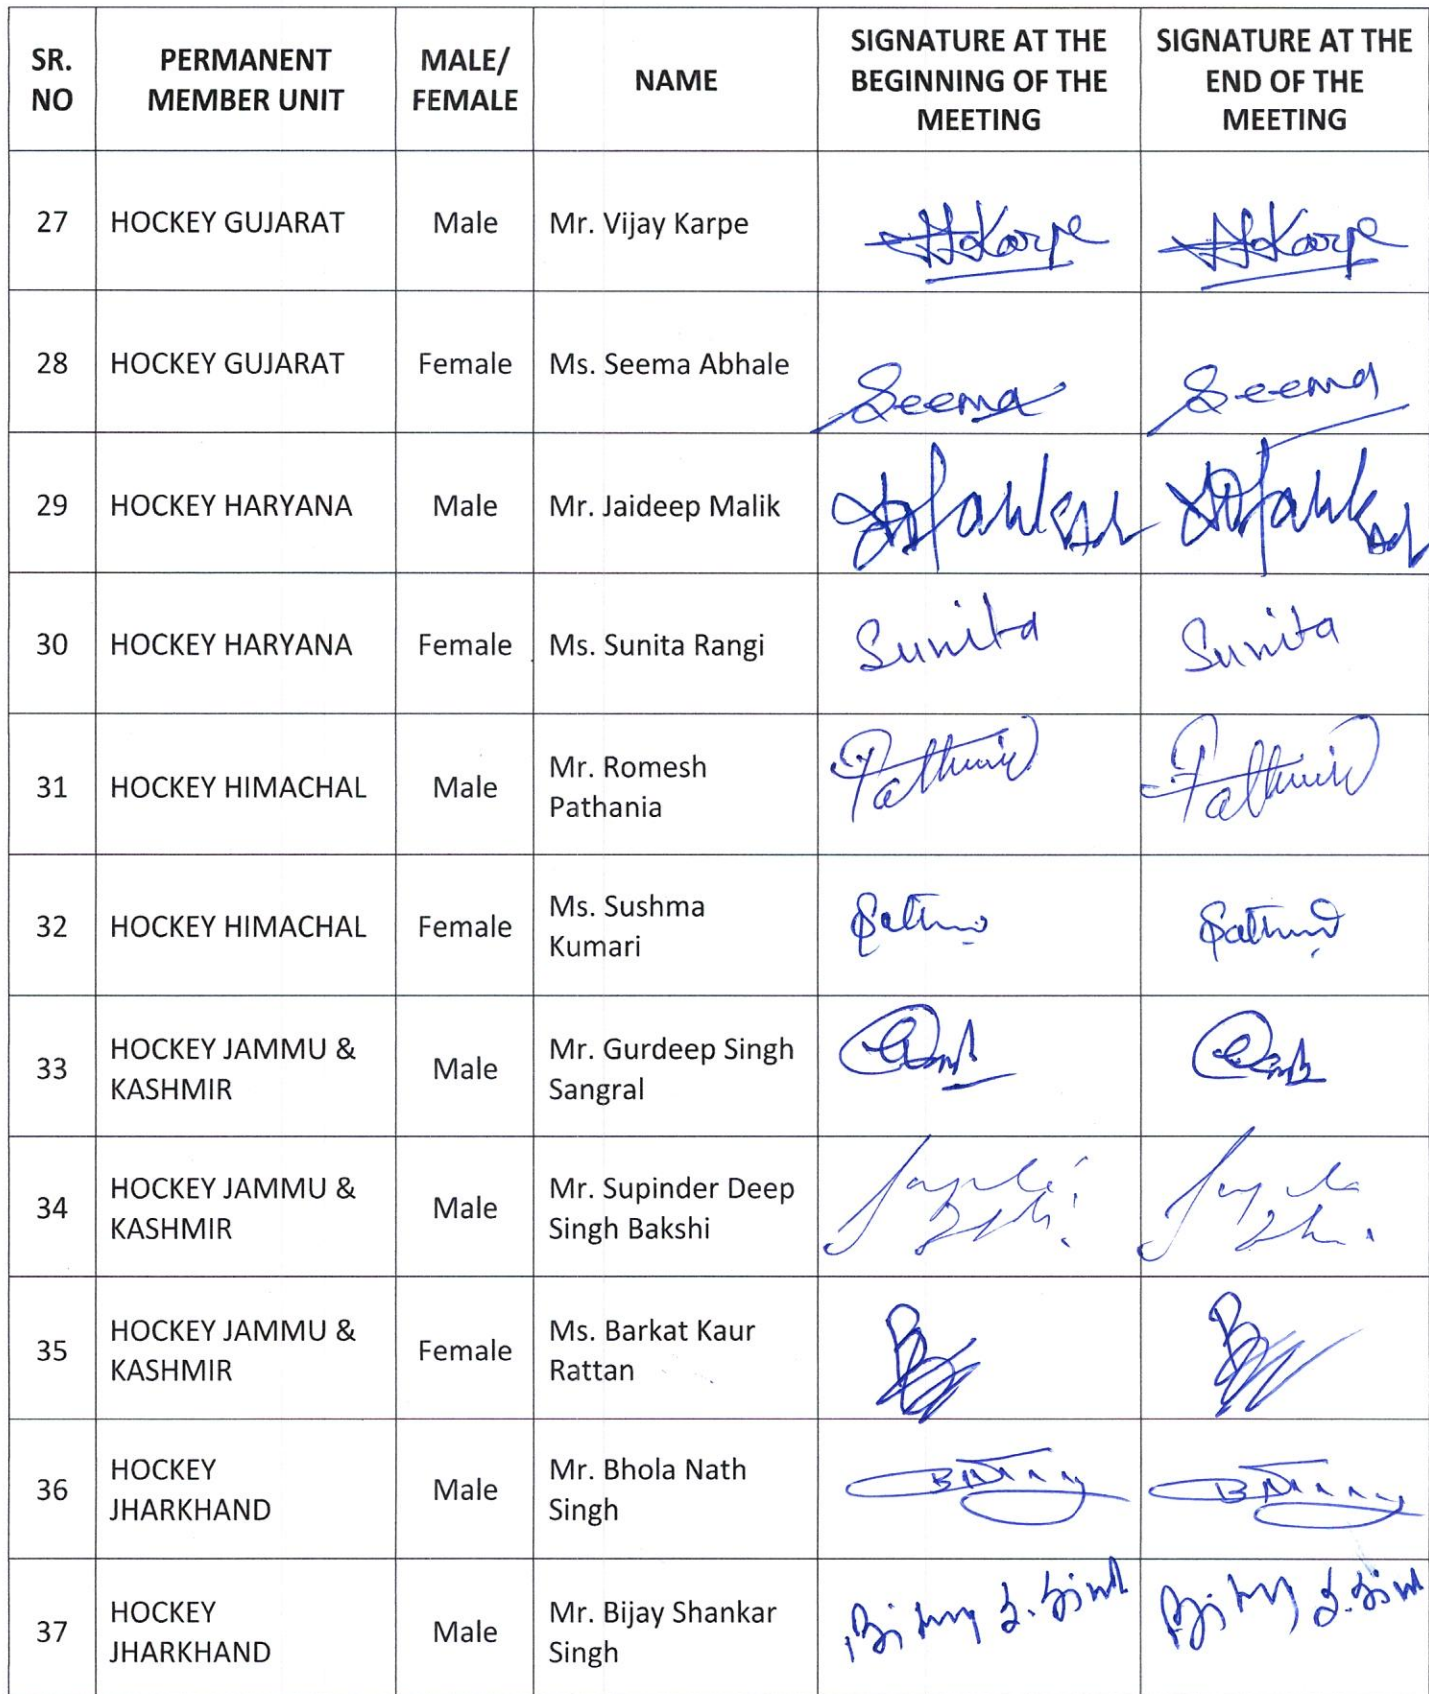 SR. NO
PERMANENT MEMBER UNIT
MALE/ FEMALE
NAME
SIGNATURE AT THE BEGINNING OF THE MEETING
SIGNATURE AT THE END OF THE MEETING
27 HOCKEY GUJARAT Male Mr. Vijay Karpe Karpe Karpe
28 HOCKEY GUJARAT Female Ms. Seema Abhale Seema Seema
29 HOCKEY HARYANA Male Mr. Jaideep Malik
30 HOCKEY HARYANA Female Ms. Sunita Rangi Sunita Sunita
31 HOCKEY HIMACHAL Male Mr. Romesh
Pathania
32 HOCKEY HIMACHAL Female Ms. Sushma
Kumari
33 HOCKEY JAMMU & Male Mr. Gurdeep Singh
KASHMIR Sangral
34 HOCKEY JAMMU & Male Mr. Supinder Deep
KASHMIR Singh Bakshi
35 HOCKEY JAMMU & Female Ms. Barkat Kaur
KASHMIR Rattan
36 HOCKEY Male Mr. Bhola Nath
JHARKHAND Singh
37 HOCKEY Male Mr. Bijay Shankar
JHARKHAND Singh